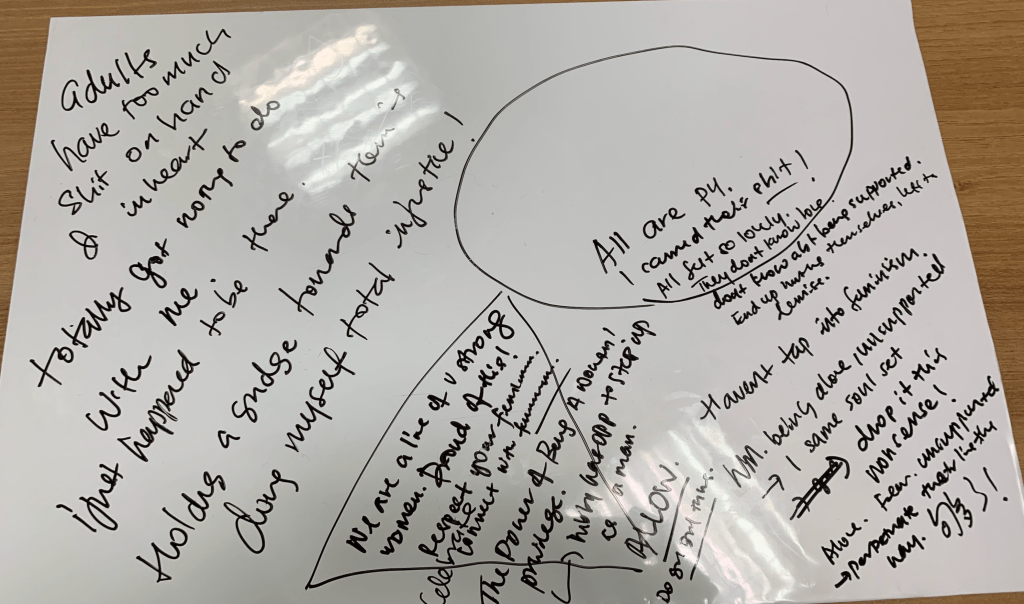 adults
have too much
shit on hand
& in heart
totally got nothg to do
with me.
i just happened to be there.
Holdg a grudge towards them is
doing myself total injustice!
All are PY.
I carried their shit!
All felt so lonely.
They don't know love
don't know abt being supported.
End up hurting themselves,
demise.
We are a line of v strong
women. Proud of this!
Respect your feminine.
connect with feminine.
The Power of Being A Woman!
privilege.
hubby has opp to step up
as a man.
ALLOW.
Do small things.
Havent tap into feminism.
NM. being alone / unsupported
→ 1 same soul set
→ drop it this
nonsense!
Alone. Fear. unsupported
→
way.